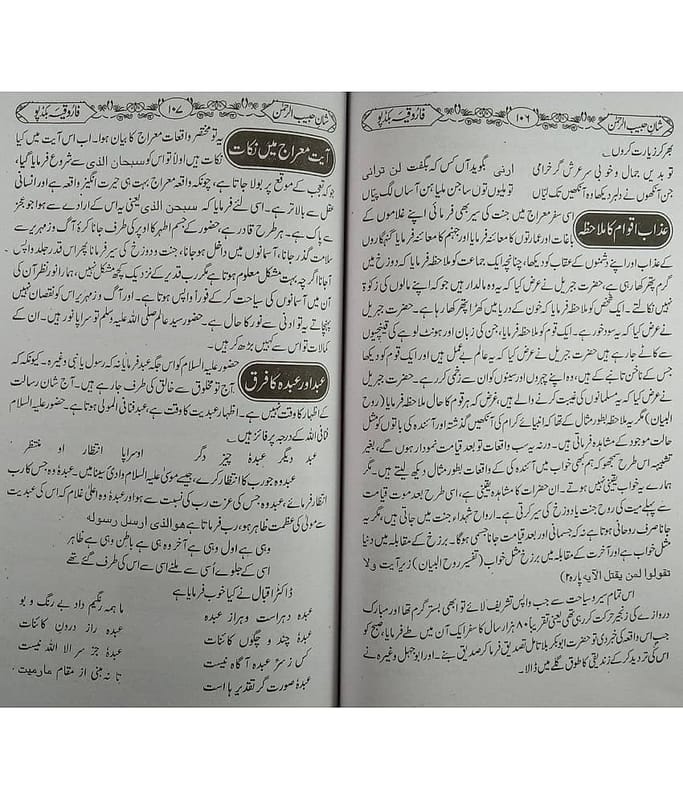 شان حبیب الرحمٰن ۱۰۶ فاروقیہ بکڈپو
بھر کر زیارت کروں۔
تو بدیں جمال و خوبی سر عرش گر خرامی ارنی بگوید آں کس کہ بگفت لن ترانی
جن آنکھوں نے دلبر دیکھا وہ آنکھیں تک لیّاں تو ملیوں تاں ساجن ملیا ہن آساں لگ پیّاں
عذاب اقوام کا ملاحظہ
اسی سفر معراج میں جنت کی سیر بھی فرمائی اپنے غلاموں کے
باغات اور عمارتوں کا معائنہ فرمایا اور جہنم کا معائنہ فرمایا گنہگاروں
کے عذاب اور اپنے دشمنوں کے عقاب کو دیکھا، چنانچہ ایک جماعت کو ملاحظہ فرمایا کہ دوزخ میں
گرم پتھر کھا رہی ہے، حضرت جبریل نے عرض کیا کہ یہ وہ مالدار ہیں جو کہ اپنے مالوں کی زکوٰۃ
نہیں نکالتے۔ ایک شخص کو ملاحظہ فرمایا کہ خون کے دریا میں کھڑا پتھر کھا رہا ہے۔ حضرت جبریل
نے عرض کیا کہ یہ سود خور ہے۔ ایک قوم کو ملاحظہ فرمایا، جن کی زبان اور ہونٹ لوہے کی قینچیوں
سے کاٹے جارہے ہیں حضرت جبریل نے عرض کیا کہ یہ عالم بے عمل ہیں اور ایک قوم کو دیکھا
جس کے ناخن تانبے کے ہیں، وہ اپنے چہروں اور سینوں کو ان سے زخمی کر رہے۔ حضرت جبریل
نے عرض کیا کہ یہ مسلمانوں کی غیبت کرنے والے ہیں، غرض کہ ہر قوم کا حال ملاحظہ فرمایا (روح
البیان) مگر یہ ملاحظہ بطور مثال کے تھا کہ انبیائے کرام کی آنکھیں گذشتہ اور آئندہ کی باتوں کو مثل
حالت موجود کے مشاہدہ فرماتی ہیں۔ ورنہ یہ سب واقعات تو بعد قیامت نمودار ہوں گے، بغیر
تشبیہ اس طرح سمجھو کہ ہم بھی خواب میں آئندہ کی کے واقعات بطور مثال دیکھ لیتے ہیں۔ مگر
ہمارے یہ خواب یقینی نہیں ہوتے۔ ان حضرات کا مشاہدہ یقینی ہے، اسی طرح بعد موت قیامت
سے پہلے میت کی روح جنت یا دوزخ کی سیر کرتی ہے۔ ارواح شہداء جنت میں جاتی ہیں، مگر یہ
جانا صرف روحانی ہوتا ہے نہ کہ جسمانی اور بعد قیامت جانا جسمی ہوگا۔ برزخ کے مقابلہ میں دنیا
مثل خواب ہے اور آخرت کے مقابلہ میں برزخ مثل خواب (تفسیر روح البیان) زیر آیت ولا
تقولوا لمن یقتل الآیہ پارہ ۲)
اس تمام سیر و سیاحت سے جب واپس تشریف لائے تو ابھی بستر گرم تھا اور مبارک
دروازے کی زنجیر حرکت کر رہی تھی یعنی تقریباً ۸۰ ہزار سال کا سفر ایک آن میں طے فرمایا، صبح کو
جب اس واقعہ کی خبر دی تو حضرت ابوبکر بلا تامل تصدیق فرما کر صدیق بنے۔ اور ابوجہل وغیرہ نے
اس کی تردید کر کے زندیقی کا طوق گلے میں ڈالا۔
شان حبیب الرحمٰن ۱۰۷ فاروقیہ بکڈپو
آیت معراج میں نکات
یہ تو مختصر واقعات معراج کا بیان ہوا۔ اب اس آیت میں کیا
نکات ہیں اولاً تو اس کو سبحان الذی سے شروع فرمایا گیا،
جو کہ تعجب کے موقع پر بولا جاتا ہے، چونکہ واقعہ معراج بہت ہی حیرت انگیز واقعہ ہے اور انسانی
عقل سے بالاتر ہے۔ اسی لئے فرمایا کہ سبحن الذی یعنی یہ اس کے ارادے سے ہوا جو عجز
سے پاک ہے۔ ہر طرح قادر ہے، حضور کے جسم اطہر کا اوپر کی طرف جانا کرۂ آگ و زمہریر سے
سلامت گذر جانا، آسمانوں میں داخل ہو جانا، جنت و دوزخ کی سیر فرمانا پھر اس قدر جلد واپس
آجانا اگرچہ بہت مشکل معلوم ہوتا ہے مگر رب قدیر کے نزدیک کچھ مشکل نہیں، ہمارا نور نظر آن کی
آن میں آسمانوں کی سیاحت کر کے فوراً واپس ہوتا ہے۔ اور آگ و زمہریر اس کو نقصان نہیں
پہنچاتے یہ تو ادنیٰ سے نور کا حال ہے۔ حضور سید عالم صلی اللہ علیہ وسلم تو سراپا نور ہیں۔ ان کے
کمالات تو اس سے کہیں بڑھ کر ہیں۔
عبد اور عبدہ کا فرق
حضور علیہ السلام کو اس جگہ عبد فرمایا نہ کہ رسول یا نبی وغیرہ۔ کیونکہ کہ
آج تو مخلوق سے خالق کی طرف جا رہے ہیں۔ آج شان رسالت
کے اظہار کا وقت نہیں ہے۔ اظہار عبدیت کا وقت ہے، عبد فنا فی المولیٰ ہوتا ہے۔ حضور علیہ السلام
فنا فی اللہ کے درجہ پر فائز ہیں۔
عبد دیگر عبدۂ چیز دگر اوسراپا انتظار او منتظر
عبد وہ جو رب کا انتظار کرے، جیسے موسیٰ علیہ السلام وادئ سینا میں۔ عبدۂ وہ جس کا رب
انتظار فرمائے، عبد وہ جس کی عزت رب کی نسبت سے ہو اور عبدۂ وہ اعلیٰ غلام کہ اس کی عبدیت
سے مولیٰ کی عظمت ظاہر ہو، رب فرماتا ہے ھو الذی ارسل رسولہ
وہی ہے اول وہی ہے آخر وہی ہے باطن وہی ہے ظاہر
اسی کے جلوے اُسی سے ملنے اسی سے اس کی طرف گئے تھے
ڈاکٹر اقبال نے کیا خوب فرمایا ہے
عبدہ دہر است و دہر از عبدہ ما ہمہ رنگیم داد بے رنگ و بو
عبدۂ چند و چگوں کائنات عبدہ راز درون کائنات
کس زسرّ عبدہ آگاہ نیست عبدۂ جز سر الا اللہ نیست
عبدۂ صورت گر تقدیر ہا است تا نہ بینی از مقام مارمیت